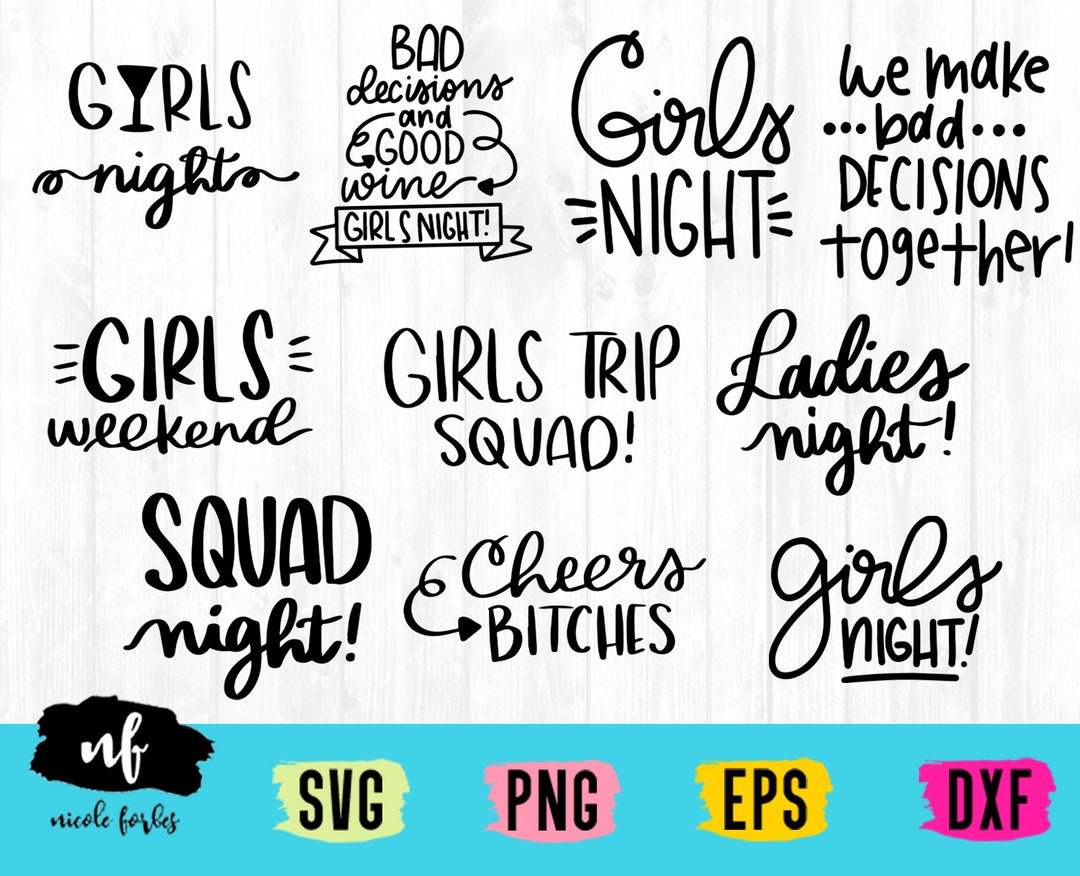 GIRLS
night
BAD
decisions
and
GOOD
wine
GIRLS NIGHT!
Girls
NIGHT
we make
...bad...
DECISIONS
together!
GIRLS
weekend
GIRLS TRIP
SQUAD!
Ladies
night!
SQUAD
night!
Cheers
BITCHES
girls
NIGHT!
nf
nicole forbes
SVG
PNG
EPS
DXF